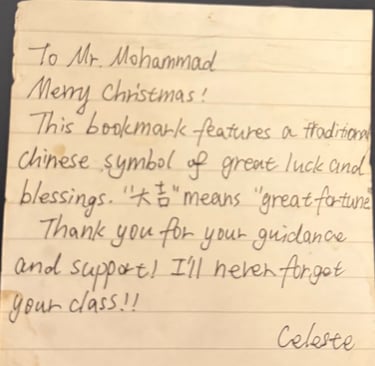 To Mr. Mohammad
Merry Christmas!
This bookmark features a traditional
Chinese symbol of great luck and
blessings. "大吉" means "great fortune"
Thank you for your guidance
and support! I'll never forget
your class!!
Celeste